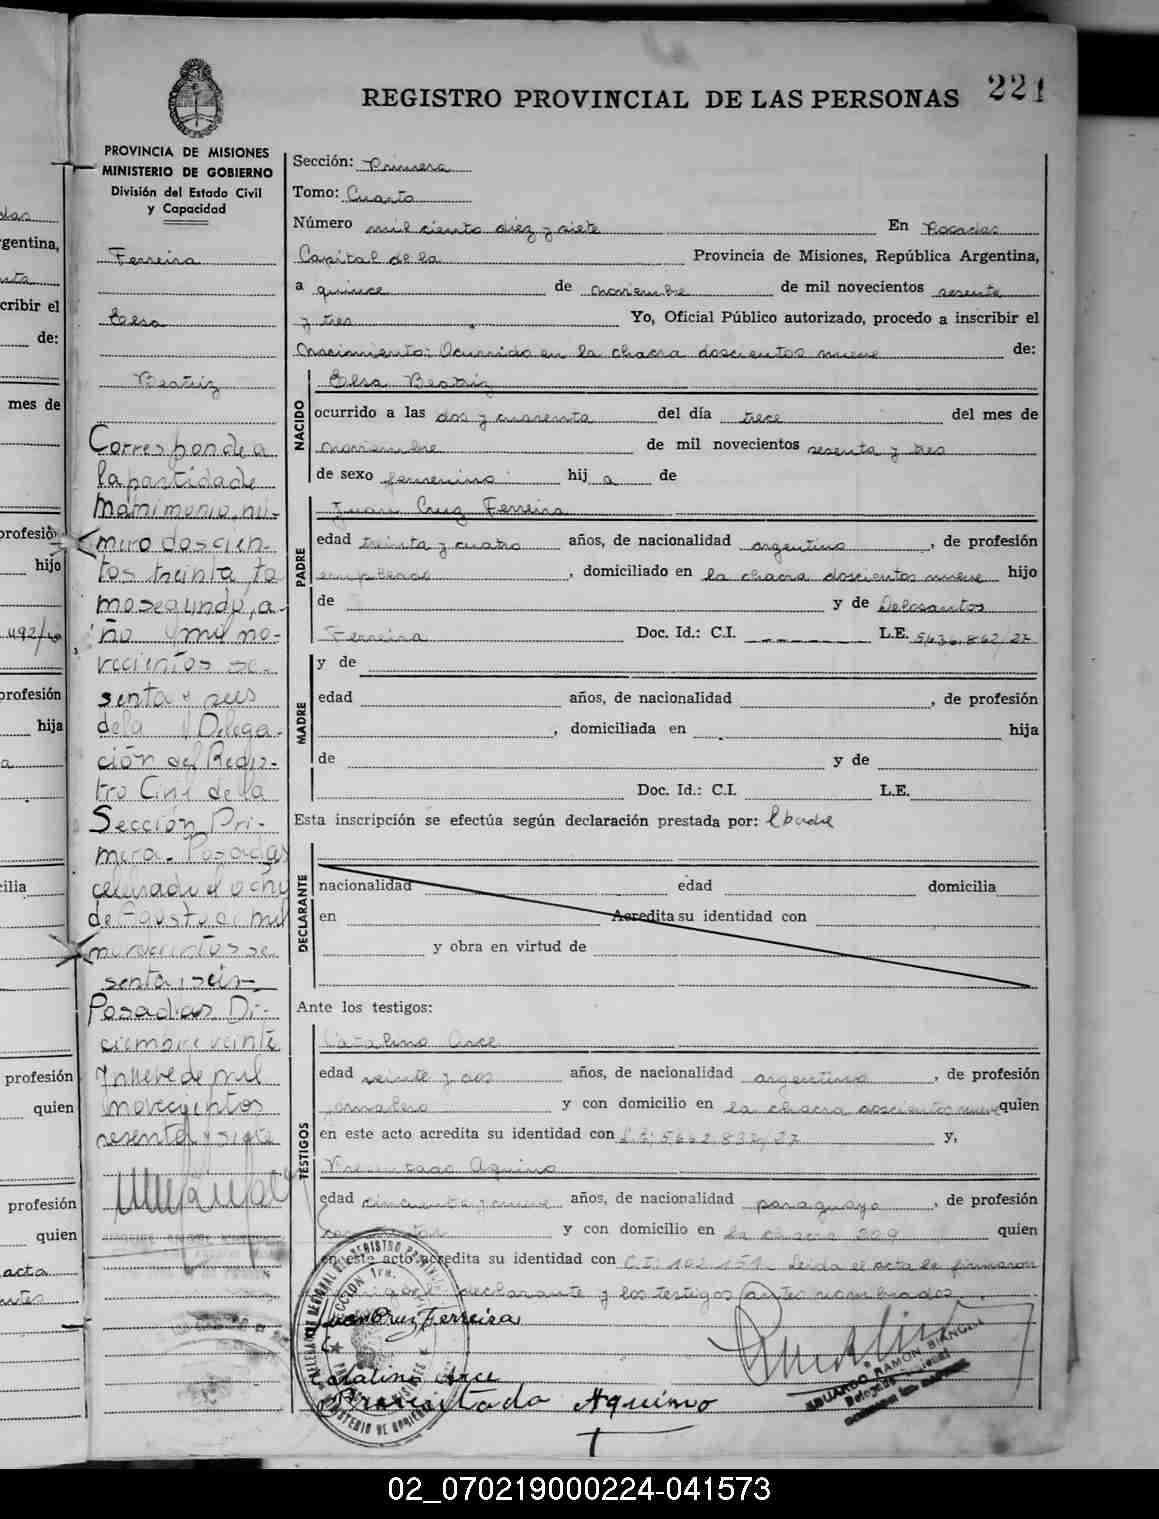 221
REGISTRO PROVINCIAL DE LAS PERSONAS
PROVINCIA DE MISIONES
MINISTERIO DE GOBIERNO
División del Estado Civil
y Capacidad
Ferreira
Elsa
Beatriz
Corresponde a
la partida de
Matrimonio, nú-
mero doscien-
tos treinta, to
mo segundo, a-
ño mil no-
vecientos se-
senta y seis
de la Delega-
ción del Regis-
tro Civil de la
Sección Pri-
mera. Posadas
celebrado el ocho
de Agosto de mil
novecientos se
senta y seis
Posadas Di-
ciembre veinte
y nueve de mil
novecientos
sesenta y siete
Sección: Primera
Tomo: Cuarto
Número mil ciento diez y siete En Posadas
Capital de la Provincia de Misiones, República Argentina,
a quince de noviembre de mil novecientos sesenta
y tres Yo, Oficial Público autorizado, procedo a inscribir el
Nacimiento: Ocurrido en la chacra doscientos nueve de:
NACIDO
Elsa Beatriz
ocurrido a las dos y cuarenta del día trece del mes de
noviembre de mil novecientos sesenta y tres
de sexo femenino hij a de
PADRE
Juan Cruz Ferreira
edad treinta y cuatro años, de nacionalidad argentino, de profesión
empleado, domiciliado en la chacra doscientos nueve hijo
de y de Delosantos
Ferreira Doc. Id.: C.I. L.E. 5.636.862/27
MADRE
y de
edad años, de nacionalidad , de profesión
, domiciliada en hija
de y de
Doc. Id.: C.I. L.E.
Esta inscripción se efectúa según declaración prestada por: el padre
DECLARANTE
nacionalidad edad domicilia
en Acredita su identidad con
y obra en virtud de
Ante los testigos:
TESTIGOS
Catalino Arce
edad veinte y dos años, de nacionalidad argentino, de profesión
jornalero y con domicilio en la chacra doscientos nueve quien
en este acto acredita su identidad con y,
Presentado Aquino
edad cincuenta y nueve años, de nacionalidad paraguayo, de profesión
y con domicilio en la chacra 209 quien
en este acto acredita su identidad con C.I: 102.151. Leida el acta la firmaron
declarante y los testigos antes nombrados.
Juan Cruz Ferreira
Catalino Arce
Presentado Aquino
EDUARDO RAMON BIANCHI
02_070219000224-041573